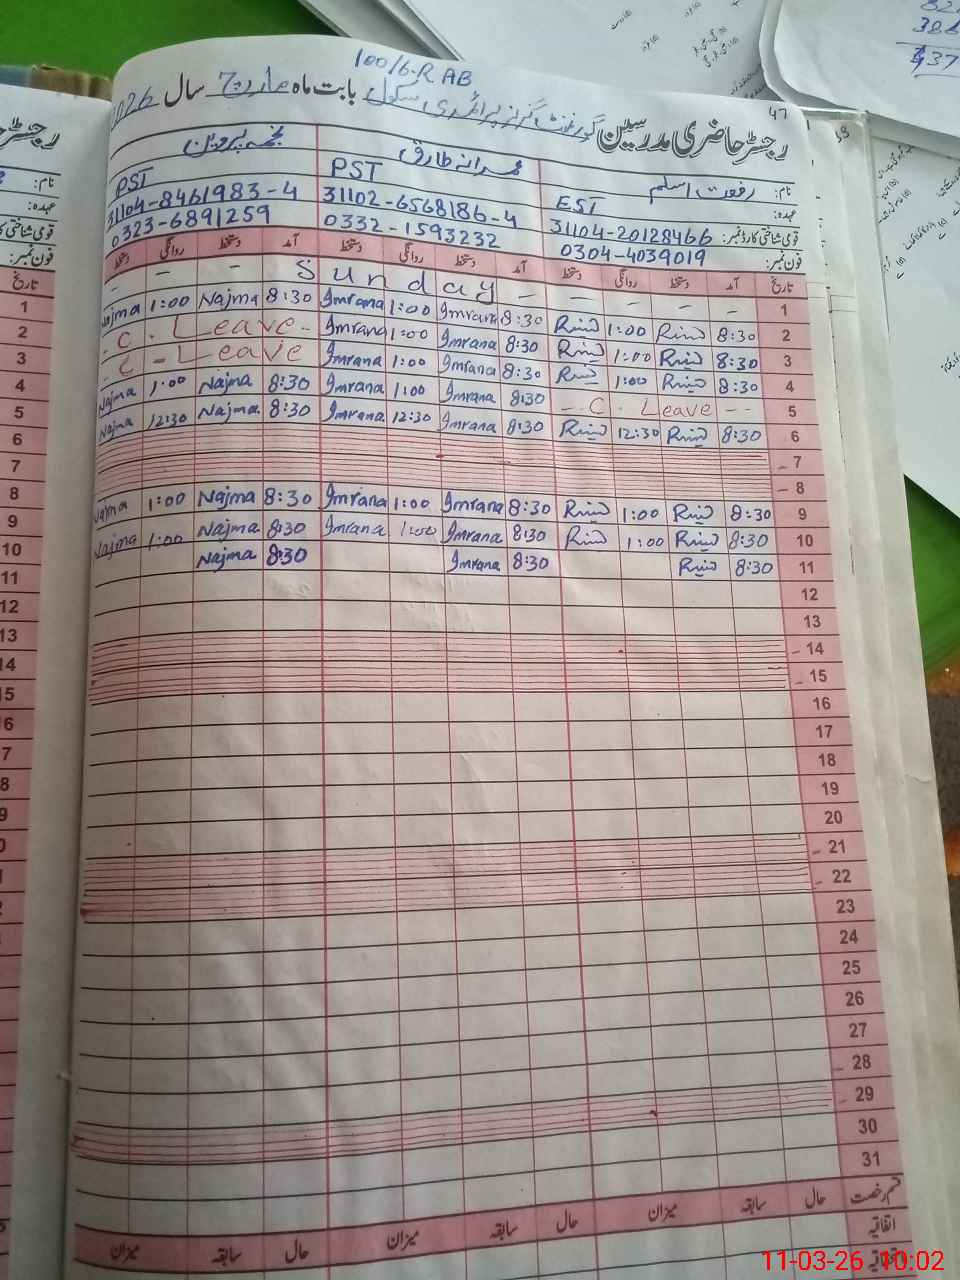 100/6-R AB
47
رجسٹر حاضری مدرسین گورنمنٹ گرلز پرائمری سکول بابت ماہ مارچ سال 2026
نام: رفعت اسلم عمرانہ طارق نجمہ پروین
عہدہ: EST PST PST
قومی شناختی کارڈ نمبر: 31104-20128466 31102-6568186-4 31104-8461983-4
فون نمبر: 0304-4039019 0332-1593232 0323-6891259
تاریخ آمد دستخط روانگی دستخط آمد دستخط روانگی دستخط آمد دستخط روانگی دستخط
1 - - - - Sunday - -
2 8:30 1:00 8:30 Imrana 1:00 Imrana 8:30 Najma 1:00 Najma
3 8:30 1:00 8:30 Imrana 1:00 Imrana - C. Leave -
4 8:30 1:00 8:30 Imrana 1:00 Imrana C - Leave
5 - C. Leave - - 8:30 Imrana 1:00 Imrana 8:30 Najma 1:00 Najma
6 8:30 12:30 8:30 Imrana 12:30 Imrana 8:30 Najma 12:30 Najma
7
8
9 8:30 1:00 8:30 Imrana 1:00 Imrana 8:30 Najma 1:00 Najma
10 8:30 1:00 8:30 Imrana 1:00 Imrana 8:30 Najma 1:00 Najma
11 8:30 8:30 Imrana 8:30 Najma
12
13
14
15
16
17
18
19
20
21
22
23
24
25
26
27
28
29
30
31
قسم رخصت حال سابقہ میزان حال سابقہ میزان حال سابقہ میزان
اتفاقیہ
11-03-26 10:02